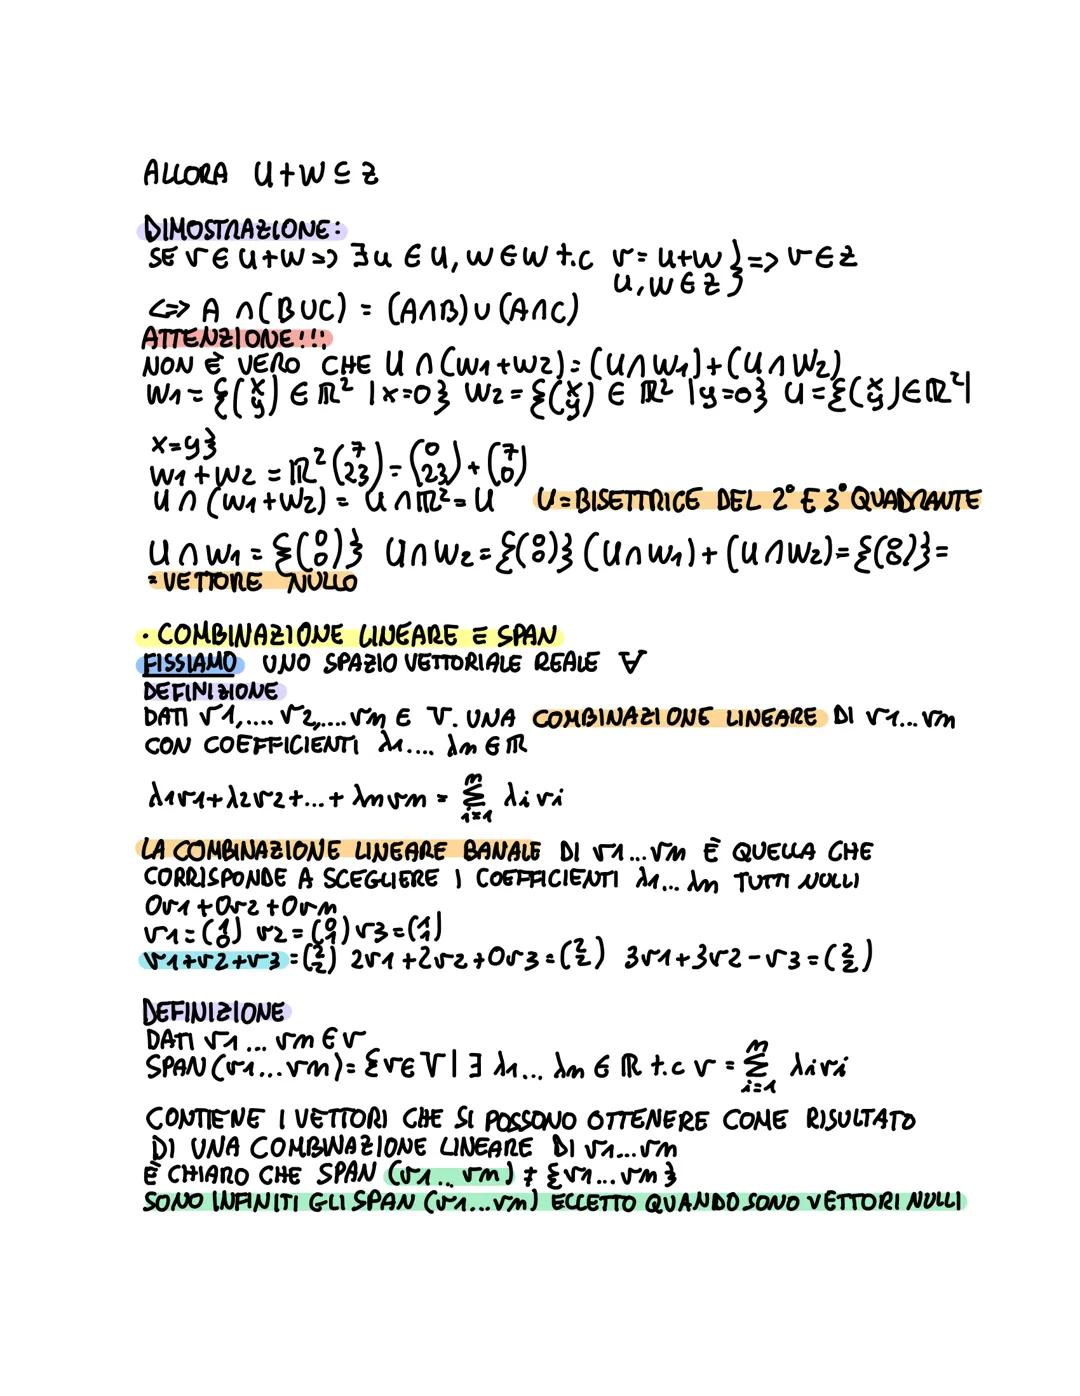 ALLORA U+W ⊆ Z
DIMOSTRAZIONE:
SE v ∈ U+W => ∃u ∈ U, w ∈ W t.c v = u+w } => v ∈ Z
u, w ∈ Z
<=> A ∩ (B ∪ C) = (A∩B) ∪ (A∩C)
ATTENZIONE!!!
NON È VERO CHE U ∩ (W1+W2) = (U∩W1)+(U∩W2)
W1 = {(x y) ∈ ℝ² | x=0} W2 = {(x y) ∈ ℝ² | y=0} U = {(x y) ∈ ℝ² |
x=y}
W1+W2 = ℝ² (7 23) = (0 23) + (7 0)
U ∩ (W1+W2) = U ∩ ℝ² = U U = BISETTRICE DEL 2° E 3° QUADRANTE
U∩W1 = {(0 0)} U∩W2 = {(0 0)} (U∩W1)+(U∩W2) = {(0 0)} =
= VETTORE NULLO
· COMBINAZIONE LINEARE E SPAN
FISSIAMO UNO SPAZIO VETTORIALE REALE V
DEFINIZIONE
DATI v1,.... v2,.... vm ∈ V. UNA COMBINAZIONE LINEARE DI v1...vm
CON COEFFICIENTI λ1.... λm ∈ ℝ
λ1v1+λ2v2+...+λmvm = m Σ i=1 λivi
LA COMBINAZIONE LINEARE BANALE DI v1...vm È QUELLA CHE
CORRISPONDE A SCEGLIERE I COEFFICIENTI λ1... λm TUTTI NULLI
0v1+0v2+0vm
v1=(1 0) v2=(0 1) v3=(1 1)
v1+v2+v3=(2 2) 2v1+2v2+0v3=(2 2) 3v1+3v2-v3=(2 2)
DEFINIZIONE
DATI v1... vm ∈ V
SPAN(v1...vm)={v∈V | ∃ λ1... λm ∈ ℝ t.c v = m Σ i=1 λivi
CONTIENE I VETTORI CHE SI POSSONO OTTENERE COME RISULTATO
DI UNA COMBINAZIONE LINEARE DI v1...vm
È CHIARO CHE SPAN (v1... vm) ≠ {v1...vm}
SONO INFINITI GLI SPAN (v1...vm) ECCETTO QUANDO SONO VETTORI NULLI